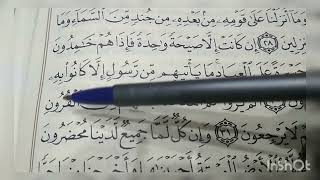 وَمَا أَنزَلْنَا عَلَىٰ قَوْمِهِۦ مِنۢ بَعْدِهِۦ مِن جُندٍ مِّنَ ٱلسَّمَآءِ وَمَا
نزِلِينَ ٢٨ إِن كَانَتْ إِلَّا صَيْحَةً وَٰحِدَةً فَإِذَا هُمْ خَٰمِدُونَ
حَسْرَةً عَلَى ٱلْعِبَادِ مَا يَأْتِيهِم مِّن رَّسُولٍ إِلَّا كَانُوا۟ بِهِۦ
ٱلْقُرُونِ
لَا يَرْجِعُونَ ٣١ وَإِن كُلٌّ لَّمَّا جَمِيعٌ لَّدَيْنَا مُحْضَرُونَ
ٱلْأَرْضُ ٱلْمَيْتَةُ أَحْيَيْنَٰهَا وَأَخْرَجْنَا مِنْهَا
InShot